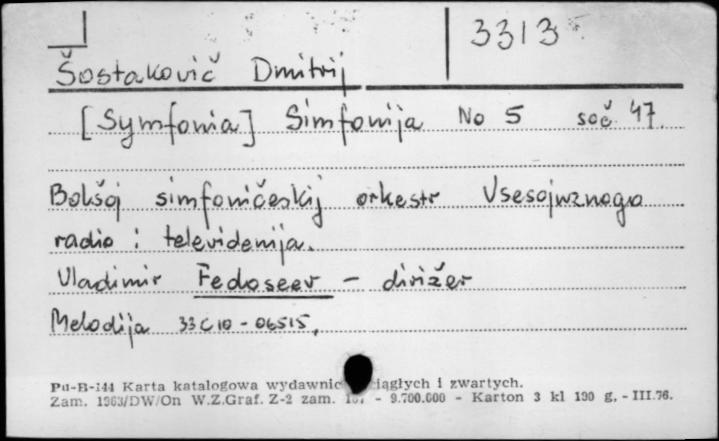 3313
Šostakovič Dmitrij
[Symfonia] Simfonija No 5 soč. 47.
Bolšoj simfoničeskij orkestr Vsesojuznogo
radio i televidenija.
Vladimir Fedoseev - dirižer
Melodija 33C10-06515.
Pu-B-144 Karta katalogowa wydawnic ciągłych i zwartych.
Zam. 1963/DW/On W.Z.Graf. Z-2 zam. - 9.700.000 - Karton 3 kl 190 g. - III.76.